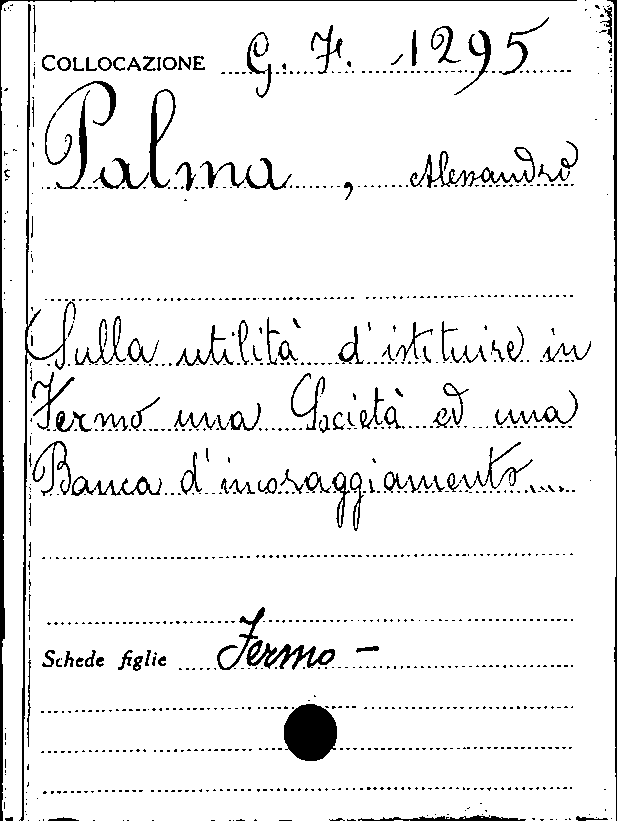 COLLOCAZIONE G. F. 1295
Palma, Alessandro
Sulla utilità d'istituire in
Fermo una Società ed una
Banca d'incoraggiamento....
Schede figlie Fermo -